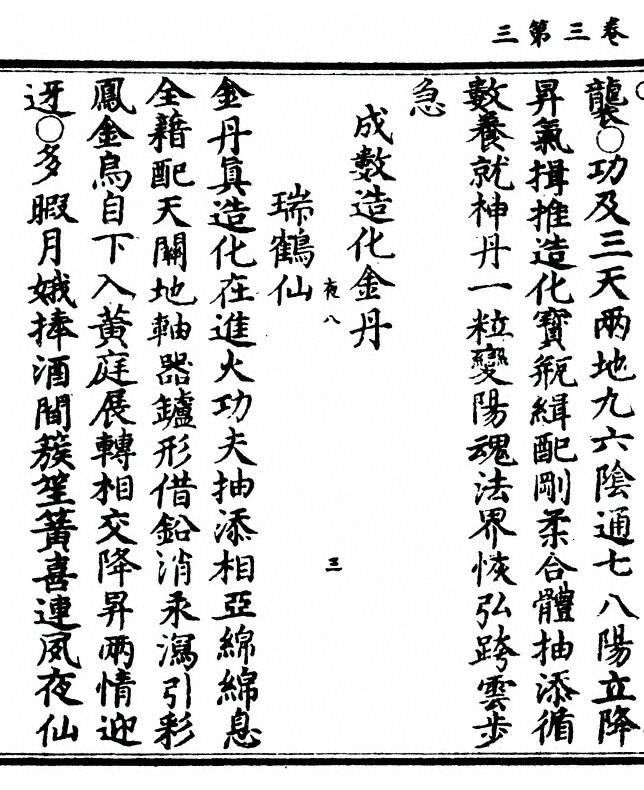 卷三第三
襲○功及三天兩地九六陰通七八陽立降
昇氣揖推造化寶瓶緝配剛柔合體抽添循
數養就神丹一粒變陽魂法界恢弘跨雲步
急
成數造化金丹
瑞鶴仙 夜八
三
金丹眞造化在進火功夫抽添相亞綿綿息
全藉配天關地軸器鑪形借鉛消汞瀉引彩
鳳金烏自下入黃庭展轉相交降昇兩情迎
迓○多暇月娥捧酒間簇笙簧喜連夙夜仙